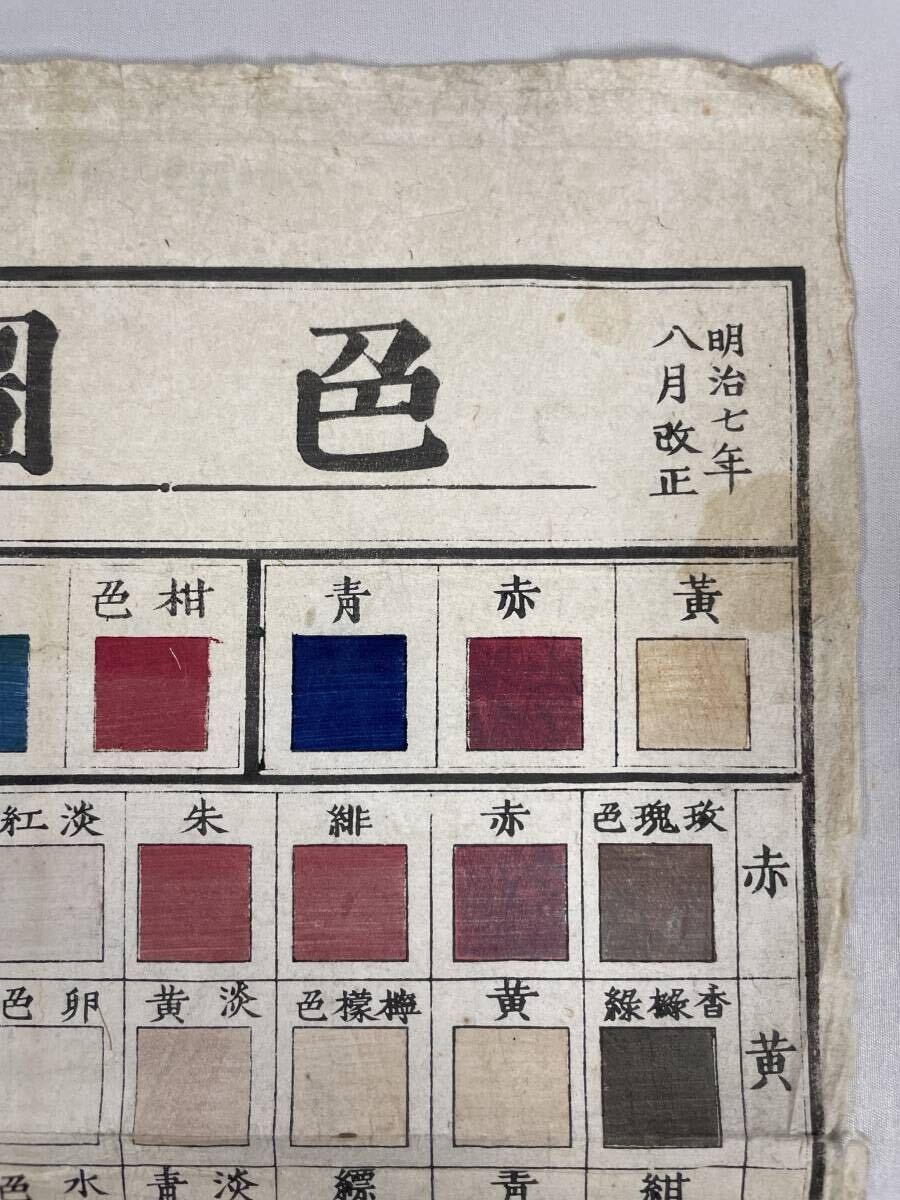 明治七年
八月改正
色圖
黄 赤 青 柑色
赤 玫瑰色 赤 緋 朱 淡紅
黄 香櫞綠 黄 檸檬色 淡黄 卵色
紺 青 縹 淡青 水色